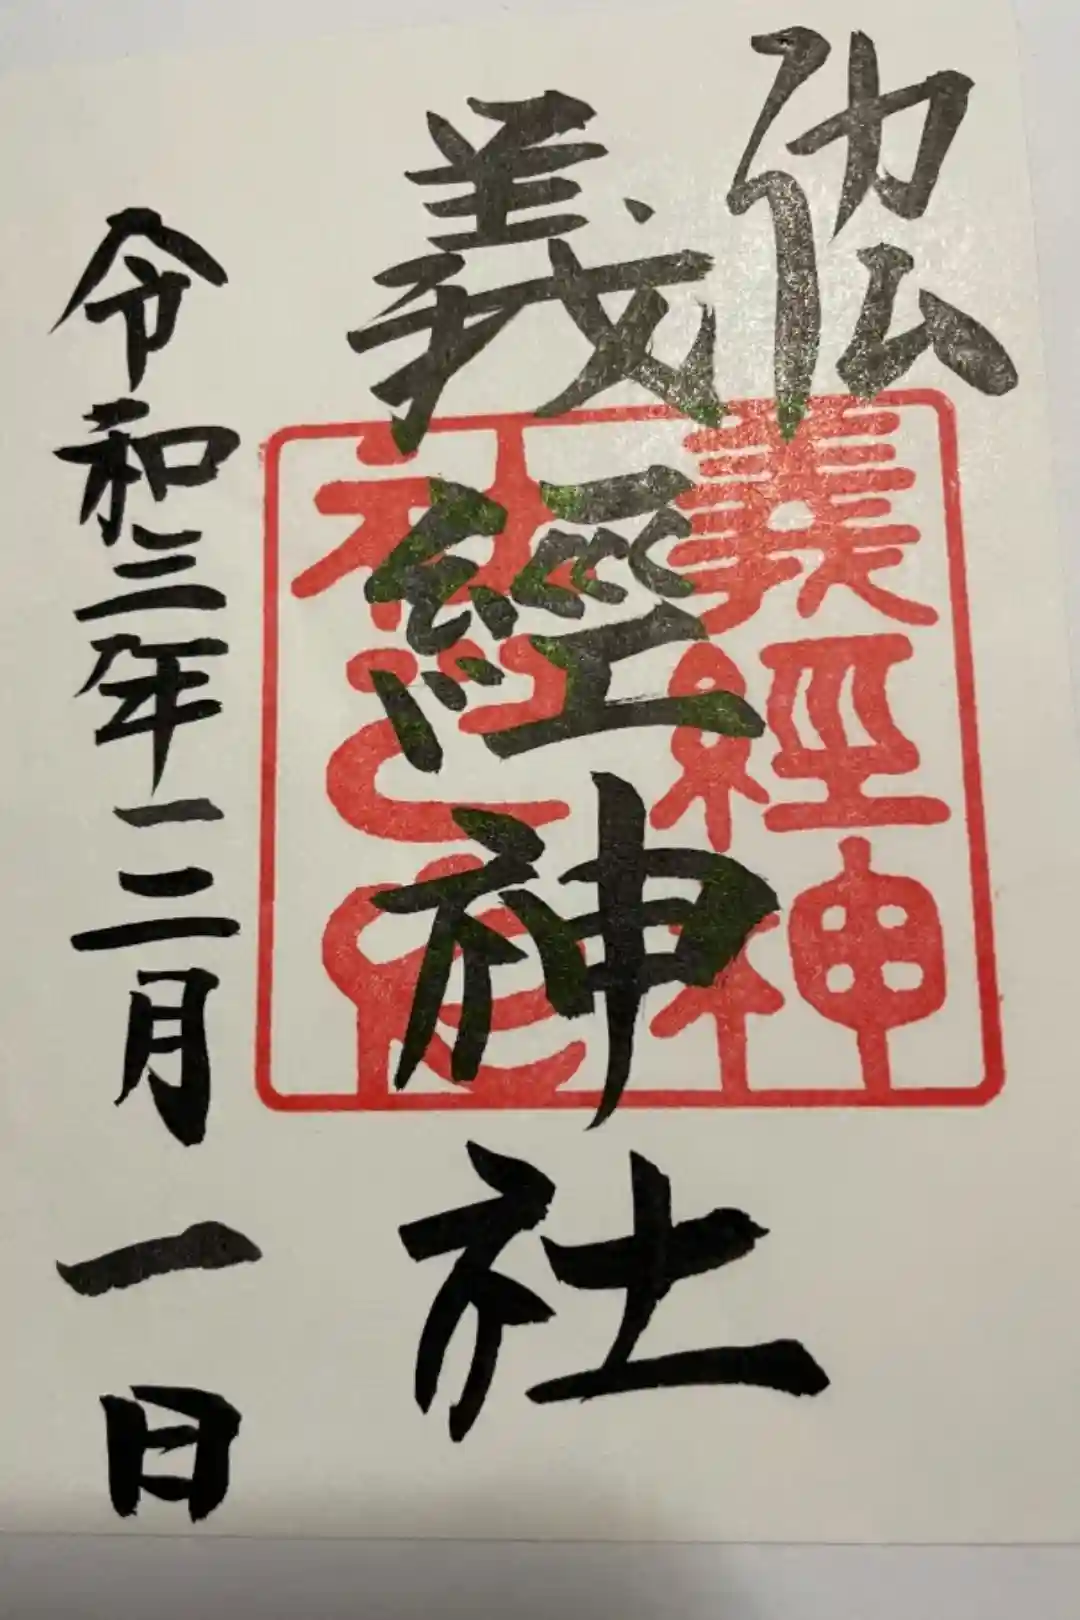 義經神社
令和三年一二月一日
義經神
社之印